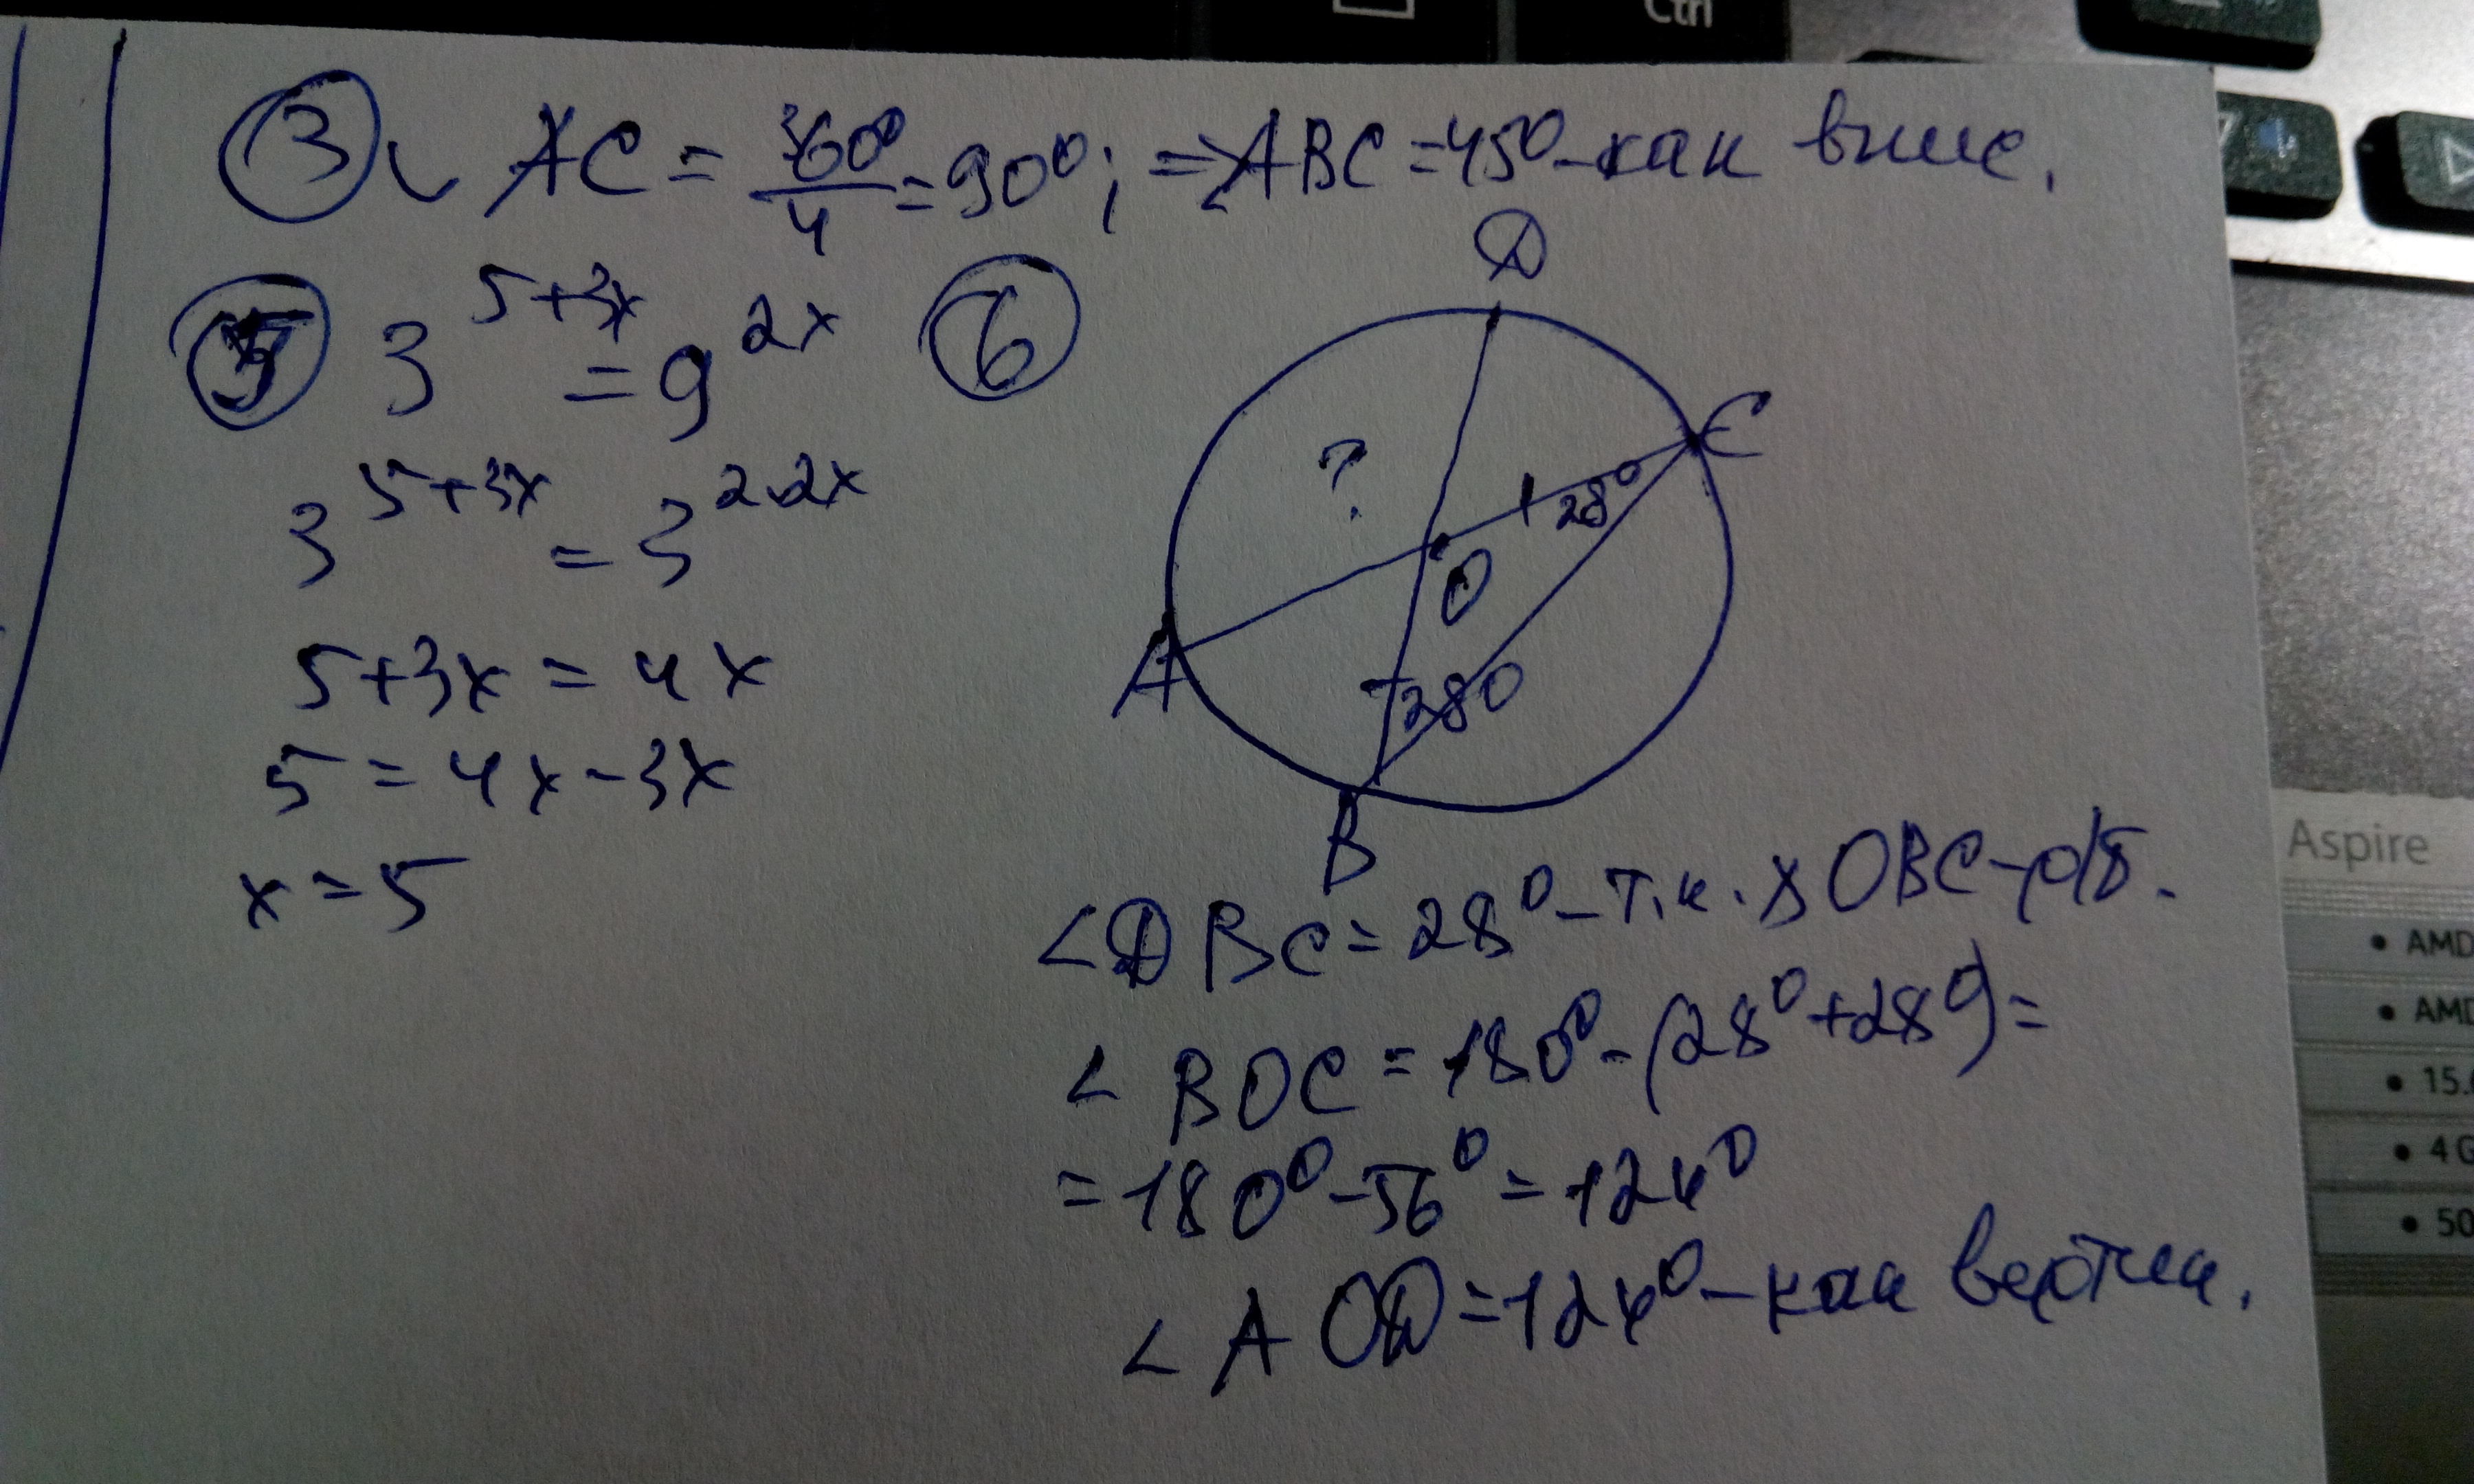 Ctrl
③ ◡ AC = 360°/4 = 90°; => ∠ABC = 45° - как выше.
⑤ 3^(5+3x) = 9^(2x)
3^(5+3x) = 3^(2·2x)
5+3x = 4x
5 = 4x - 3x
x = 5
⑥
D
C
?
28°
O
A
28°
B
∠DBC = 28° - т.к. △OBC - р/б.
∠BOC = 180° - (28° + 28°) =
= 180° - 56° = 124°
∠AOD = 124° - как вертик.
Aspire
• AMD
• AMD
• 15.
• 4 G
• 50